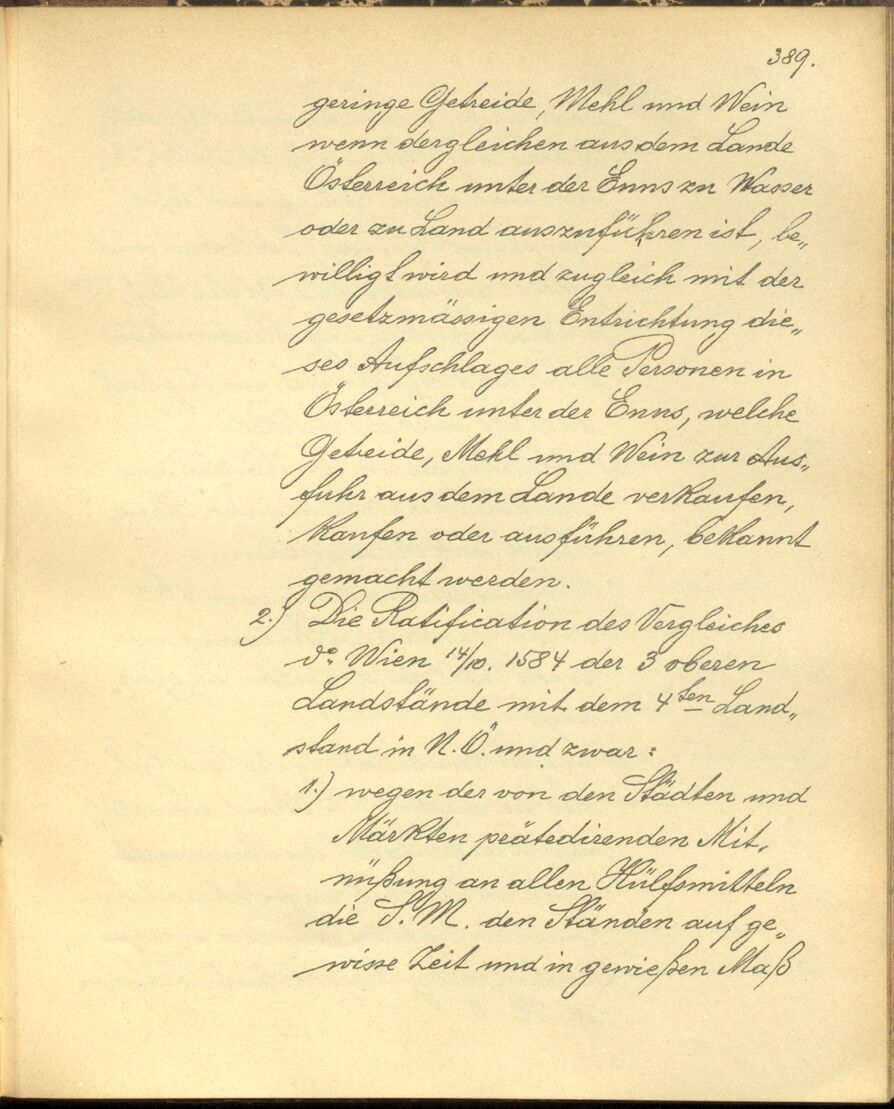 389.
geringe Getreide, Mehl und Wein
wenn dergleichen aus dem Lande
Österreich unter der Enns zu Wasser
oder zu Land auszuführen ist, be„
willigt wird und zugleich mit der
gesetzmässigen Entrichtung die„
ses Aufschlages alle Personen in
Österreich unter der Enns, welche
Getreide, Mehl und Wein zur Aus„
fuhr aus dem Lande verkaufen,
kaufen oder ausführen, bekannt
gemacht werden.
2.) Die Ratification des Vergleiches
do: Wien 14/10. 1584 der 3 oberen
Landstände mit dem 4ten Land„
stand in N.Ö. und zwar:
1.) wegen der von den Städten und
Märkten peätedirenden Mit„
nüßung an allen Hülfsmitteln
die S.M. den Ständen auf ge„
wisse Zeit und in gewießen Maß